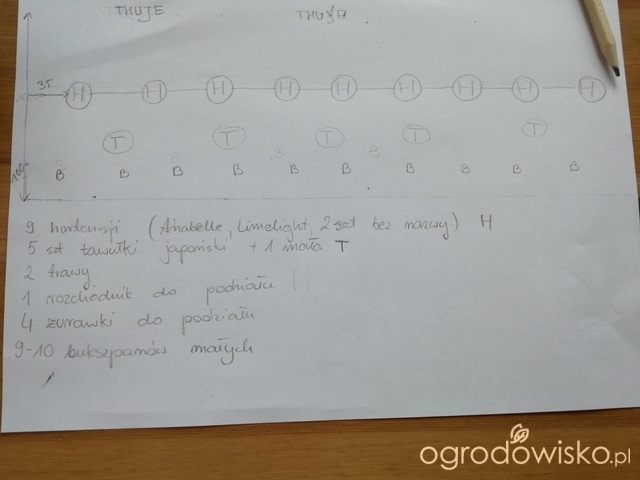 THUJE THUJE
35
H H H H H H H H H
T T T T T
B B B B B B B B B
100
9 hortensji (Anabelle, Limelight, 2 szt bez nazwy) H
5 szt tawułki japoński + 1 mała T
2 trawy
1 rozchodnik do podziału (
4 żurawki do podziału
9-10 bukszpanów małych
ogrodowisko.pl